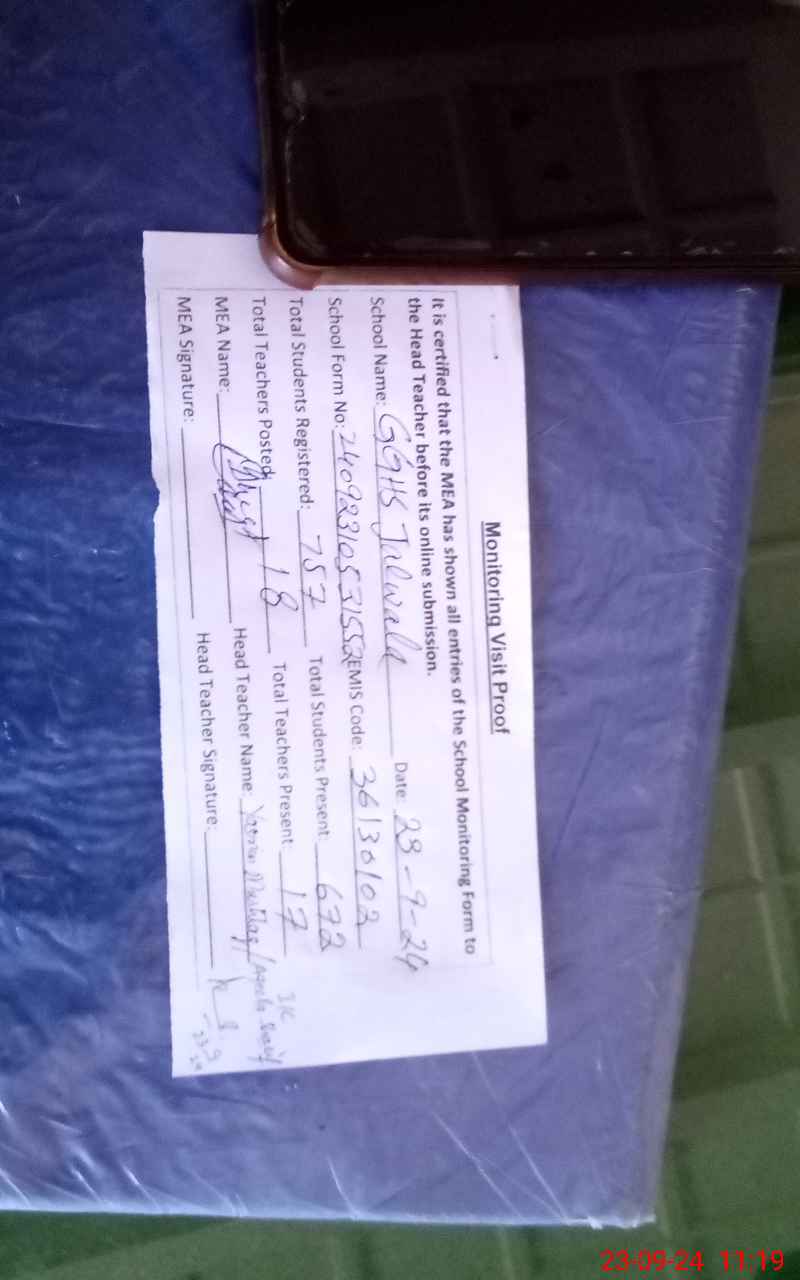 Monitoring Visit Proof
It is certified that the MEA has shown all entries of the School Monitoring Form to
the Head Teacher before its online submission.
School Name: GGHS Jalwala Date: 23-9-24
School Form No: 24092310531552 EMIS Code: 36130102
Total Students Registered: 757 Total Students Present: 672
Total Teachers Posted: 18 Total Teachers Present: 17
MEA Name: Head Teacher Name: Yasmin Mushtaq / I/C
MEA Signature: Head Teacher Signature:
23-9-24
23-09-24 11:19